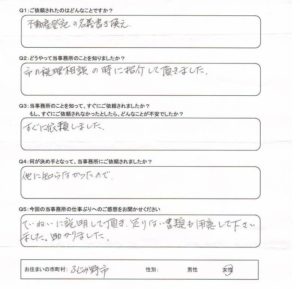 Q1:ご依頼されたのはどんなことですか?
不動産登記の名義書き換え
Q2:どうやって当事務所のことを知りましたか?
市の税理相談の時に紹介して頂きました。
Q3:当事務所のことを知って、すぐにご依頼されましたか?
もし、すぐにご依頼されなかったとしたら、どんなことが不安でしたか?
すぐに依頼しました。
Q4:何が決め手となって、当事務所にご依頼されましたか?
他に知らなかったので
Q5:今回の当事務所の仕事ぶりへのご感想をお聞かせください
ていねいに説明して頂き、足りない書類も用意して下さい
ました。助かりました。
お住まいの市町村: ふじみ野市 性別: 男性 女性